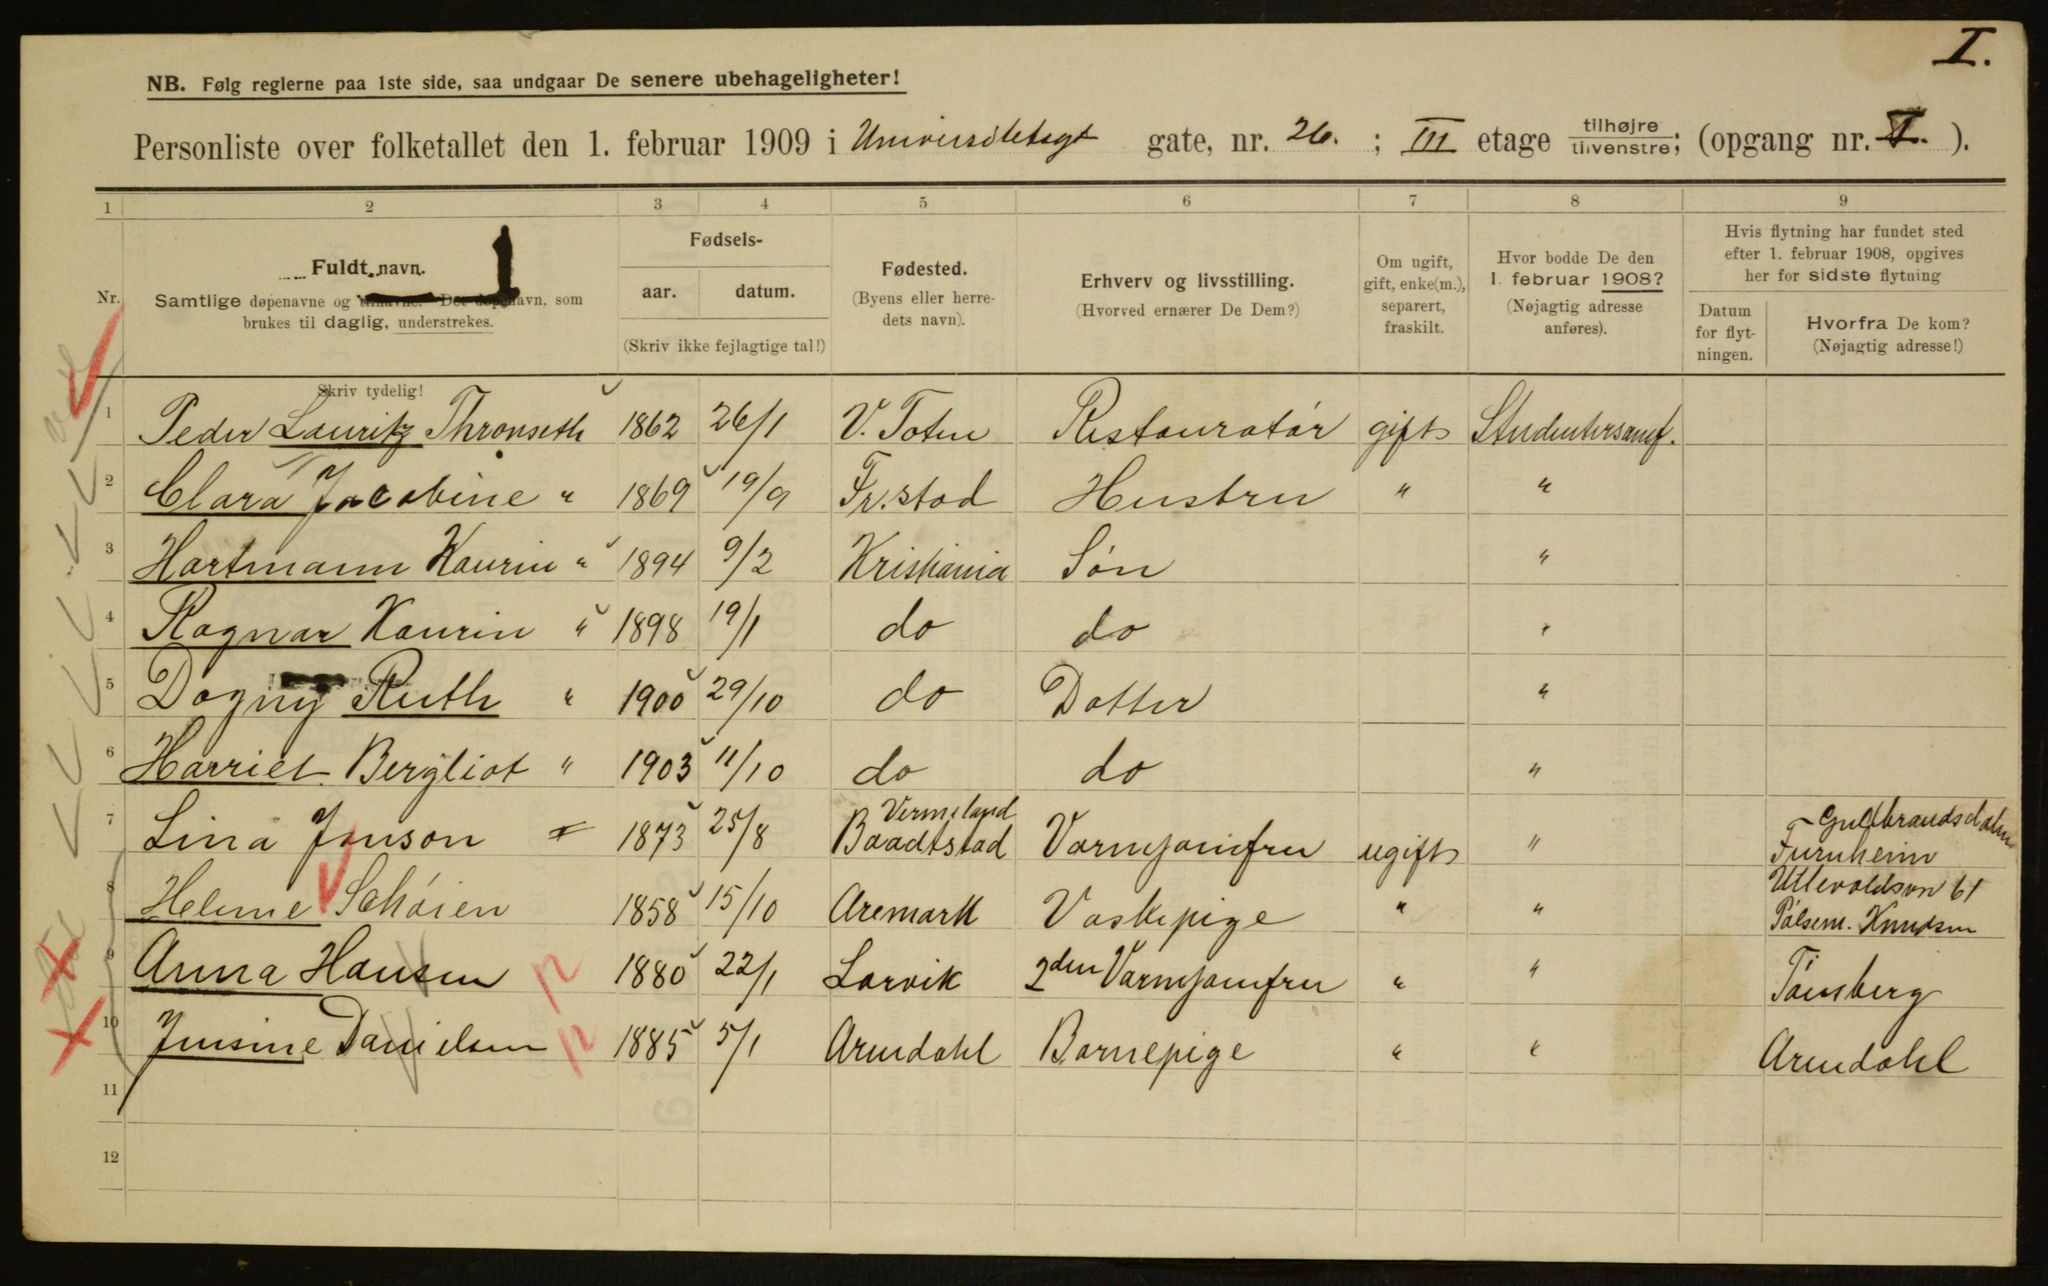 I.
NB. Følg reglerne paa 1ste side, saa undgaar De senere ubehageligheter!
Personliste over folketallet den 1. februar 1909 i Universitetsgt gate, nr. 26. ; III etage tilhøjre tilvenstre; (opgang nr. I. ).
1 2 3 4 5 6 7 8 9
Nr. Fuldt navn. Samtlige døpenavne og tilnavne. Det døpenavn, som brukes til daglig, understrekes.
Fødsels- aar. datum. (Skriv ikke fejlagtige tal!)
Fødested. (Byens eller herredets navn).
Erhverv og livsstilling. (Hvorved ernærer De Dem?)
Om ugift, gift, enke(m.), separert, fraskilt.
Hvor bodde De den 1. februar 1908? (Nøjagtig adresse anføres).
Hvis flytning har fundet sted efter 1. februar 1908, opgives her for sidste flytning
Datum for flytningen. Hvorfra De kom? (Nøjagtig adresse!)
Skriv tydelig!
1 Peder Lauritz Thronseth 1862 26/1 V. Toten Restauratør gift Studentersamf.
2 Clara Jacobine " 1869 19/9 Fr.stad Hustru " "
3 Hartmann Kaurin " 1894 9/2 Kristiania Søn "
4 Ragnar Kaurin " 1898 19/1 do do "
5 Dagny Ruth " 1900 29/10 do Datter "
6 Harriet Bergliot " 1903 11/10 do do "
7 Lina Jonson 1873 25/8 Vermeland Baadtstad Varmjomfru ugift " Gulbrandsdalen Furuheim
8 Helene Schøien 1858 15/10 Aremark Vaskepige " " Ullevoldsvn 61 Pølsem. Knudsen
9 Anna Hansen 1880 22/1 Larvik 2den Varmjomfru " " Tønsberg
10 Jensine Danielsen 1885 5/1 Arendahl Barnepige " " Arendahl
11
12